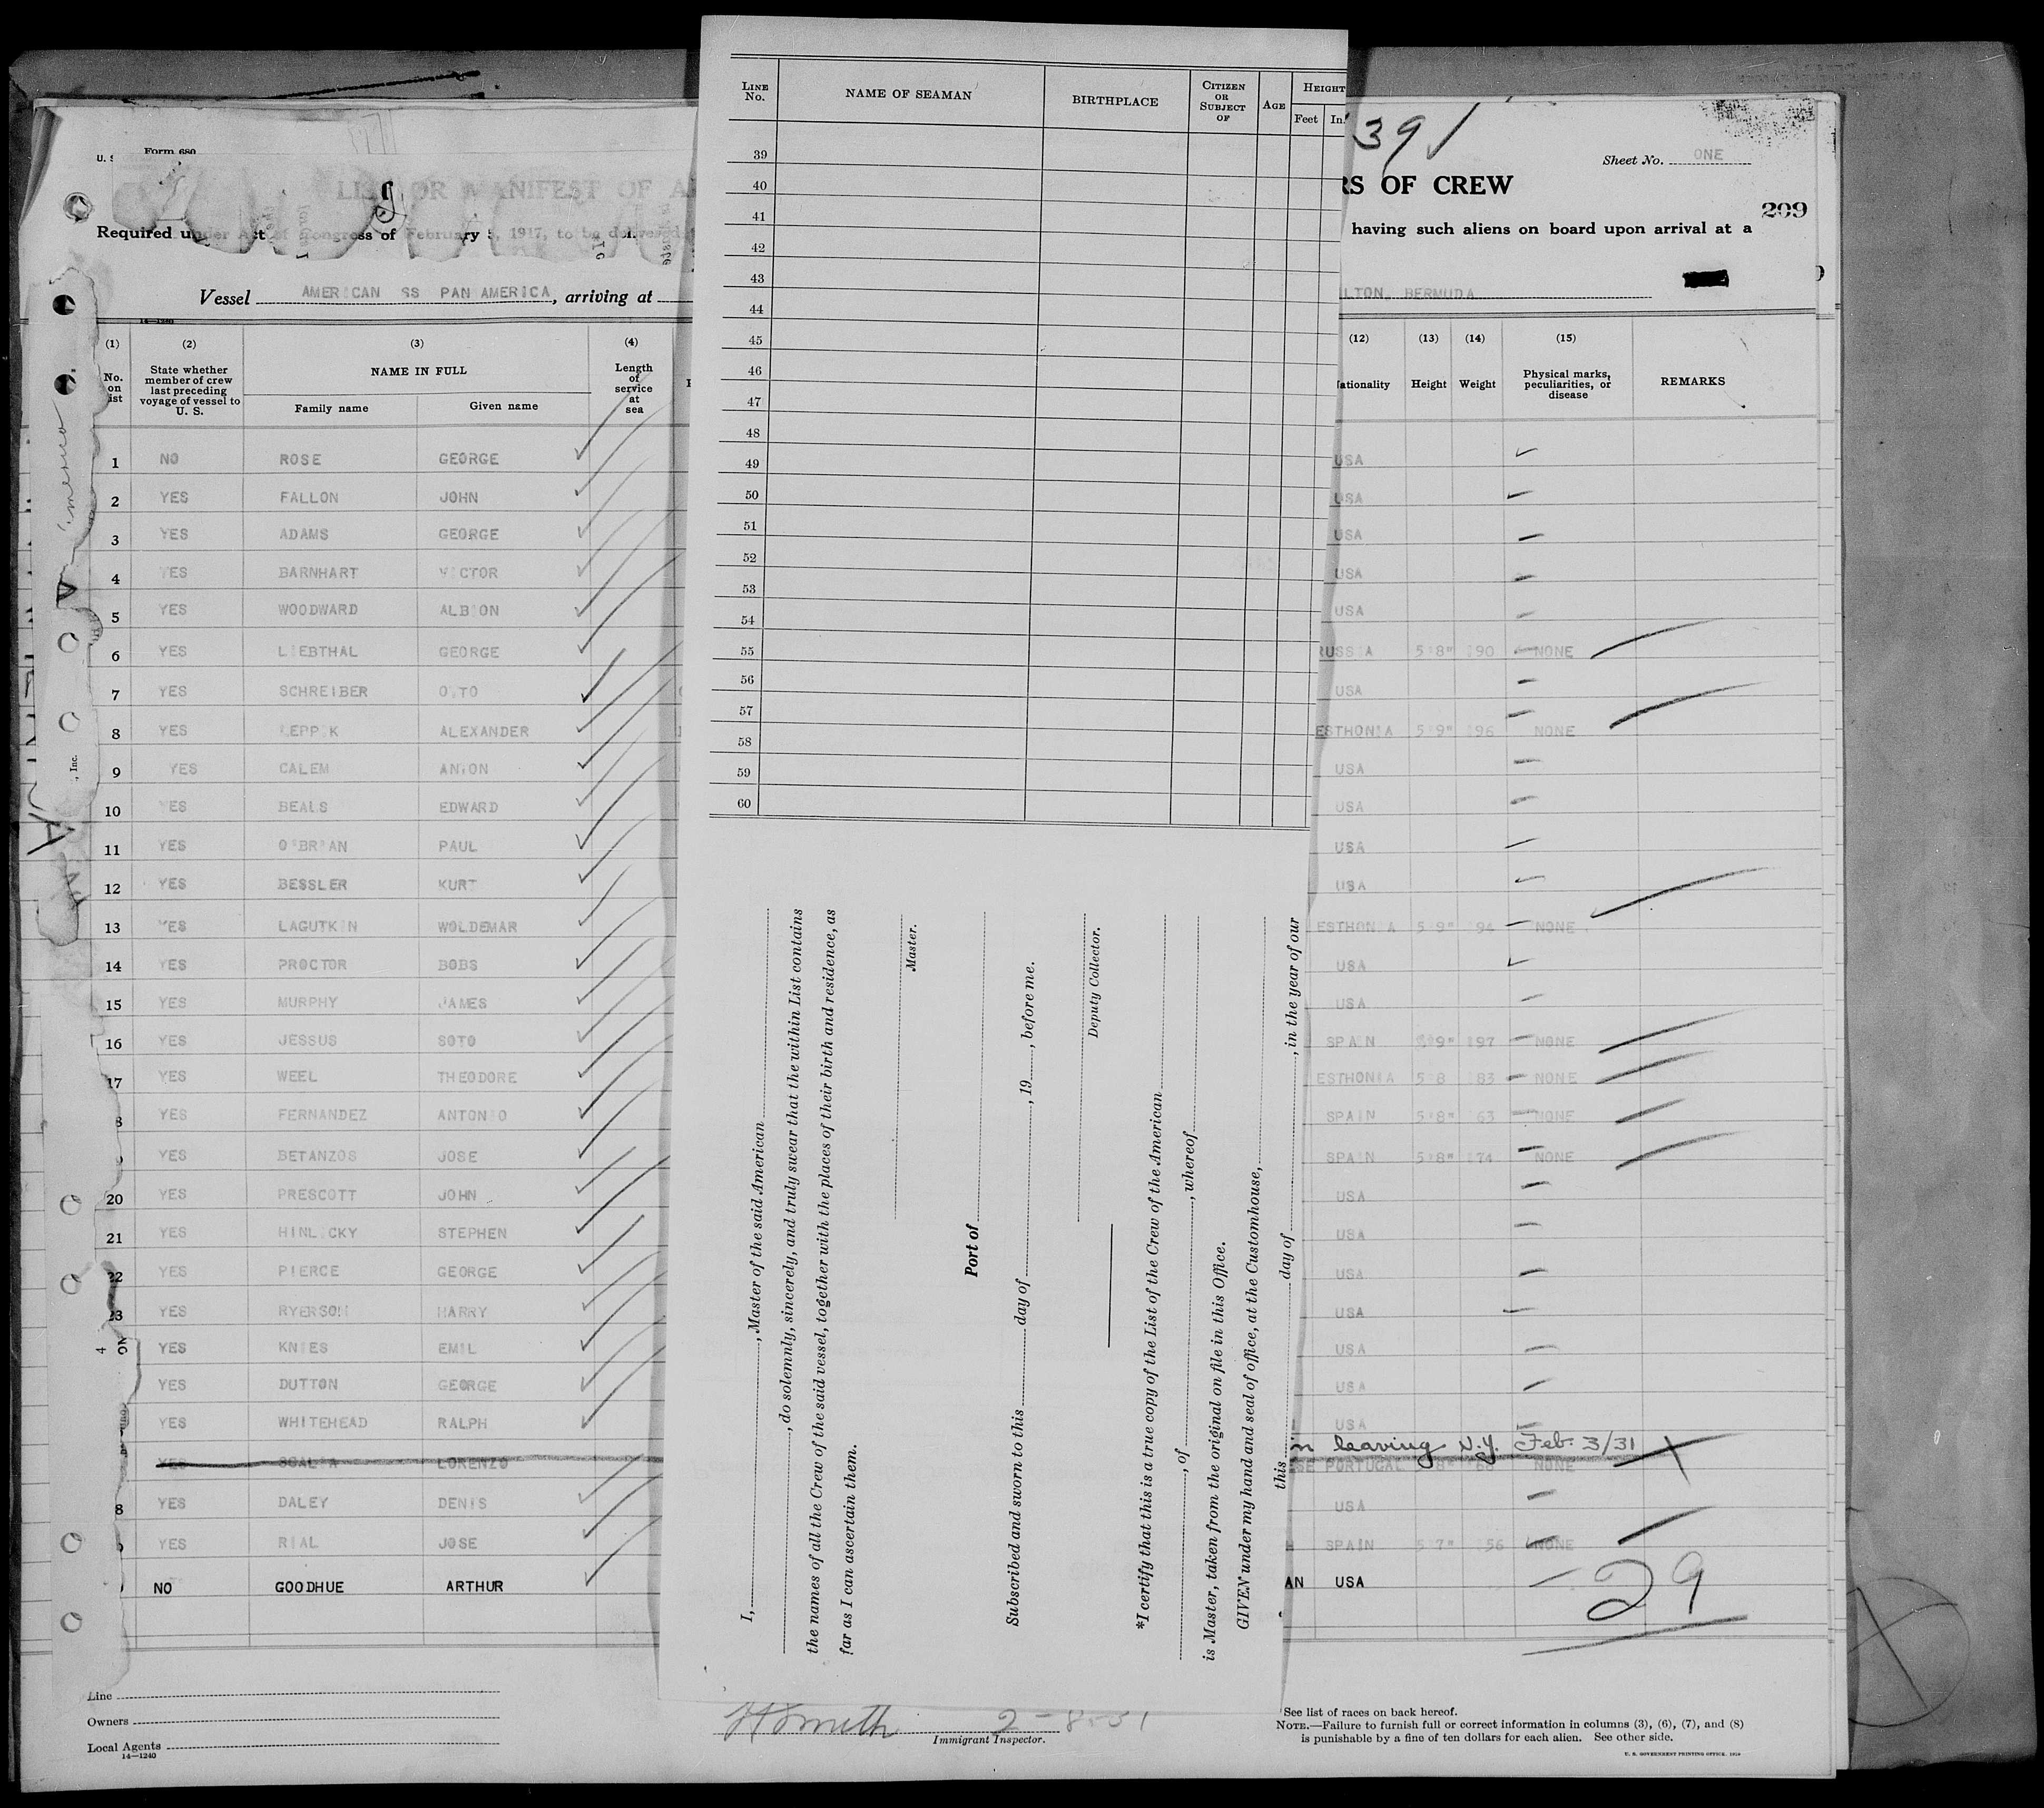 Form 680
U. S
391
Sheet No. ONE
LIST OR MANIFEST OF A
RS OF CREW
209
Required under Act of Congress of February 5, 1917, to be delivered
having such aliens on board upon arrival at a
Vessel AMERICAN SS PAN AMERICA, arriving at
LTON, BERMUDA
14—1240
(1) (2) (3) (4) (12) (13) (14) (15)
No. on ist
State whether member of crew last preceding voyage of vessel to U. S.
NAME IN FULL
Family name Given name
Length of service at sea
ationality Height Weight
Physical marks, peculiarities, or disease
REMARKS
1 NO ROSE GEORGE USA
2 YES FALLON JOHN USA
3 YES ADAMS GEORGE USA
4 YES BARNHART VICTOR USA
5 YES WOODWARD ALBION USA
6 YES LIEBTHAL GEORGE RUSSIA 5'8" 190 NONE
7 YES SCHREIBER OTTO USA
8 YES LEPPIK ALEXANDER ESTHONIA 5'9" 196 NONE
9 YES CALEM ANTON USA
10 YES BEALS EDWARD USA
11 YES O'BRIAN PAUL USA
12 YES BESSLER KURT USA
13 YES LAGUTKIN WOLDEMAR ESTHONIA 5'9" 194 NONE
14 YES PROCTOR BOBS USA
15 YES MURPHY JAMES USA
16 YES JESSUS SOTO SPAIN 9" 197 NONE
17 YES WEEL THEODORE ESTHONIA 5'8 183 NONE
8 YES FERNANDEZ ANTONIO SPAIN 5'8" 163 NONE
YES BETANZOS JOSE SPAIN 5'8" 174 NONE
20 YES PRESCOTT JOHN USA
21 YES HINLICKY STEPHEN USA
22 YES PIERCE GEORGE USA
23 YES RYERSON HARRY USA
4 YES KNIES EMIL USA
YES DUTTON GEORGE USA
YES WHITEHEAD RALPH USA
n leaving N.Y. Feb. 3/31
YES LORENZO SE PORTUGAL NONE
8 YES DALEY DENIS USA
YES RIAL JOSE H SPAIN 5'7" 156 NONE
NO GOODHUE ARTHUR AN USA
29
, Inc.
Line
Owners
Local Agents
14—1240
2-8-31
Immigrant Inspector.
See list of races on back hereof.
NOTE.—Failure to furnish full or correct information in columns (3), (6), (7), and (8)
is punishable by a fine of ten dollars for each alien. See other side.
U. S. GOVERNMENT PRINTING OFFICE: 1929
LINE No. NAME OF SEAMAN BIRTHPLACE CITIZEN OR SUBJECT OF AGE HEIGHT
Feet In.
39
40
41
42
43
44
45
46
47
48
49
50
51
52
53
54
55
56
57
58
59
60
I, , Master of the said American
, do solemnly, sincerely, and truly swear that the within List contains
the names of all the Crew of the said vessel, together with the places of their birth and residence, as
far as I can ascertain them.
Master.
Port of
Subscribed and sworn to this day of , 19 , before me.
Deputy Collector.
*I certify that this is a true copy of the List of the Crew of the American
, of , whereof
is Master, taken from the original on file in this Office.
GIVEN under my hand and seal of office, at the Customhouse,
this day of , in the year of our